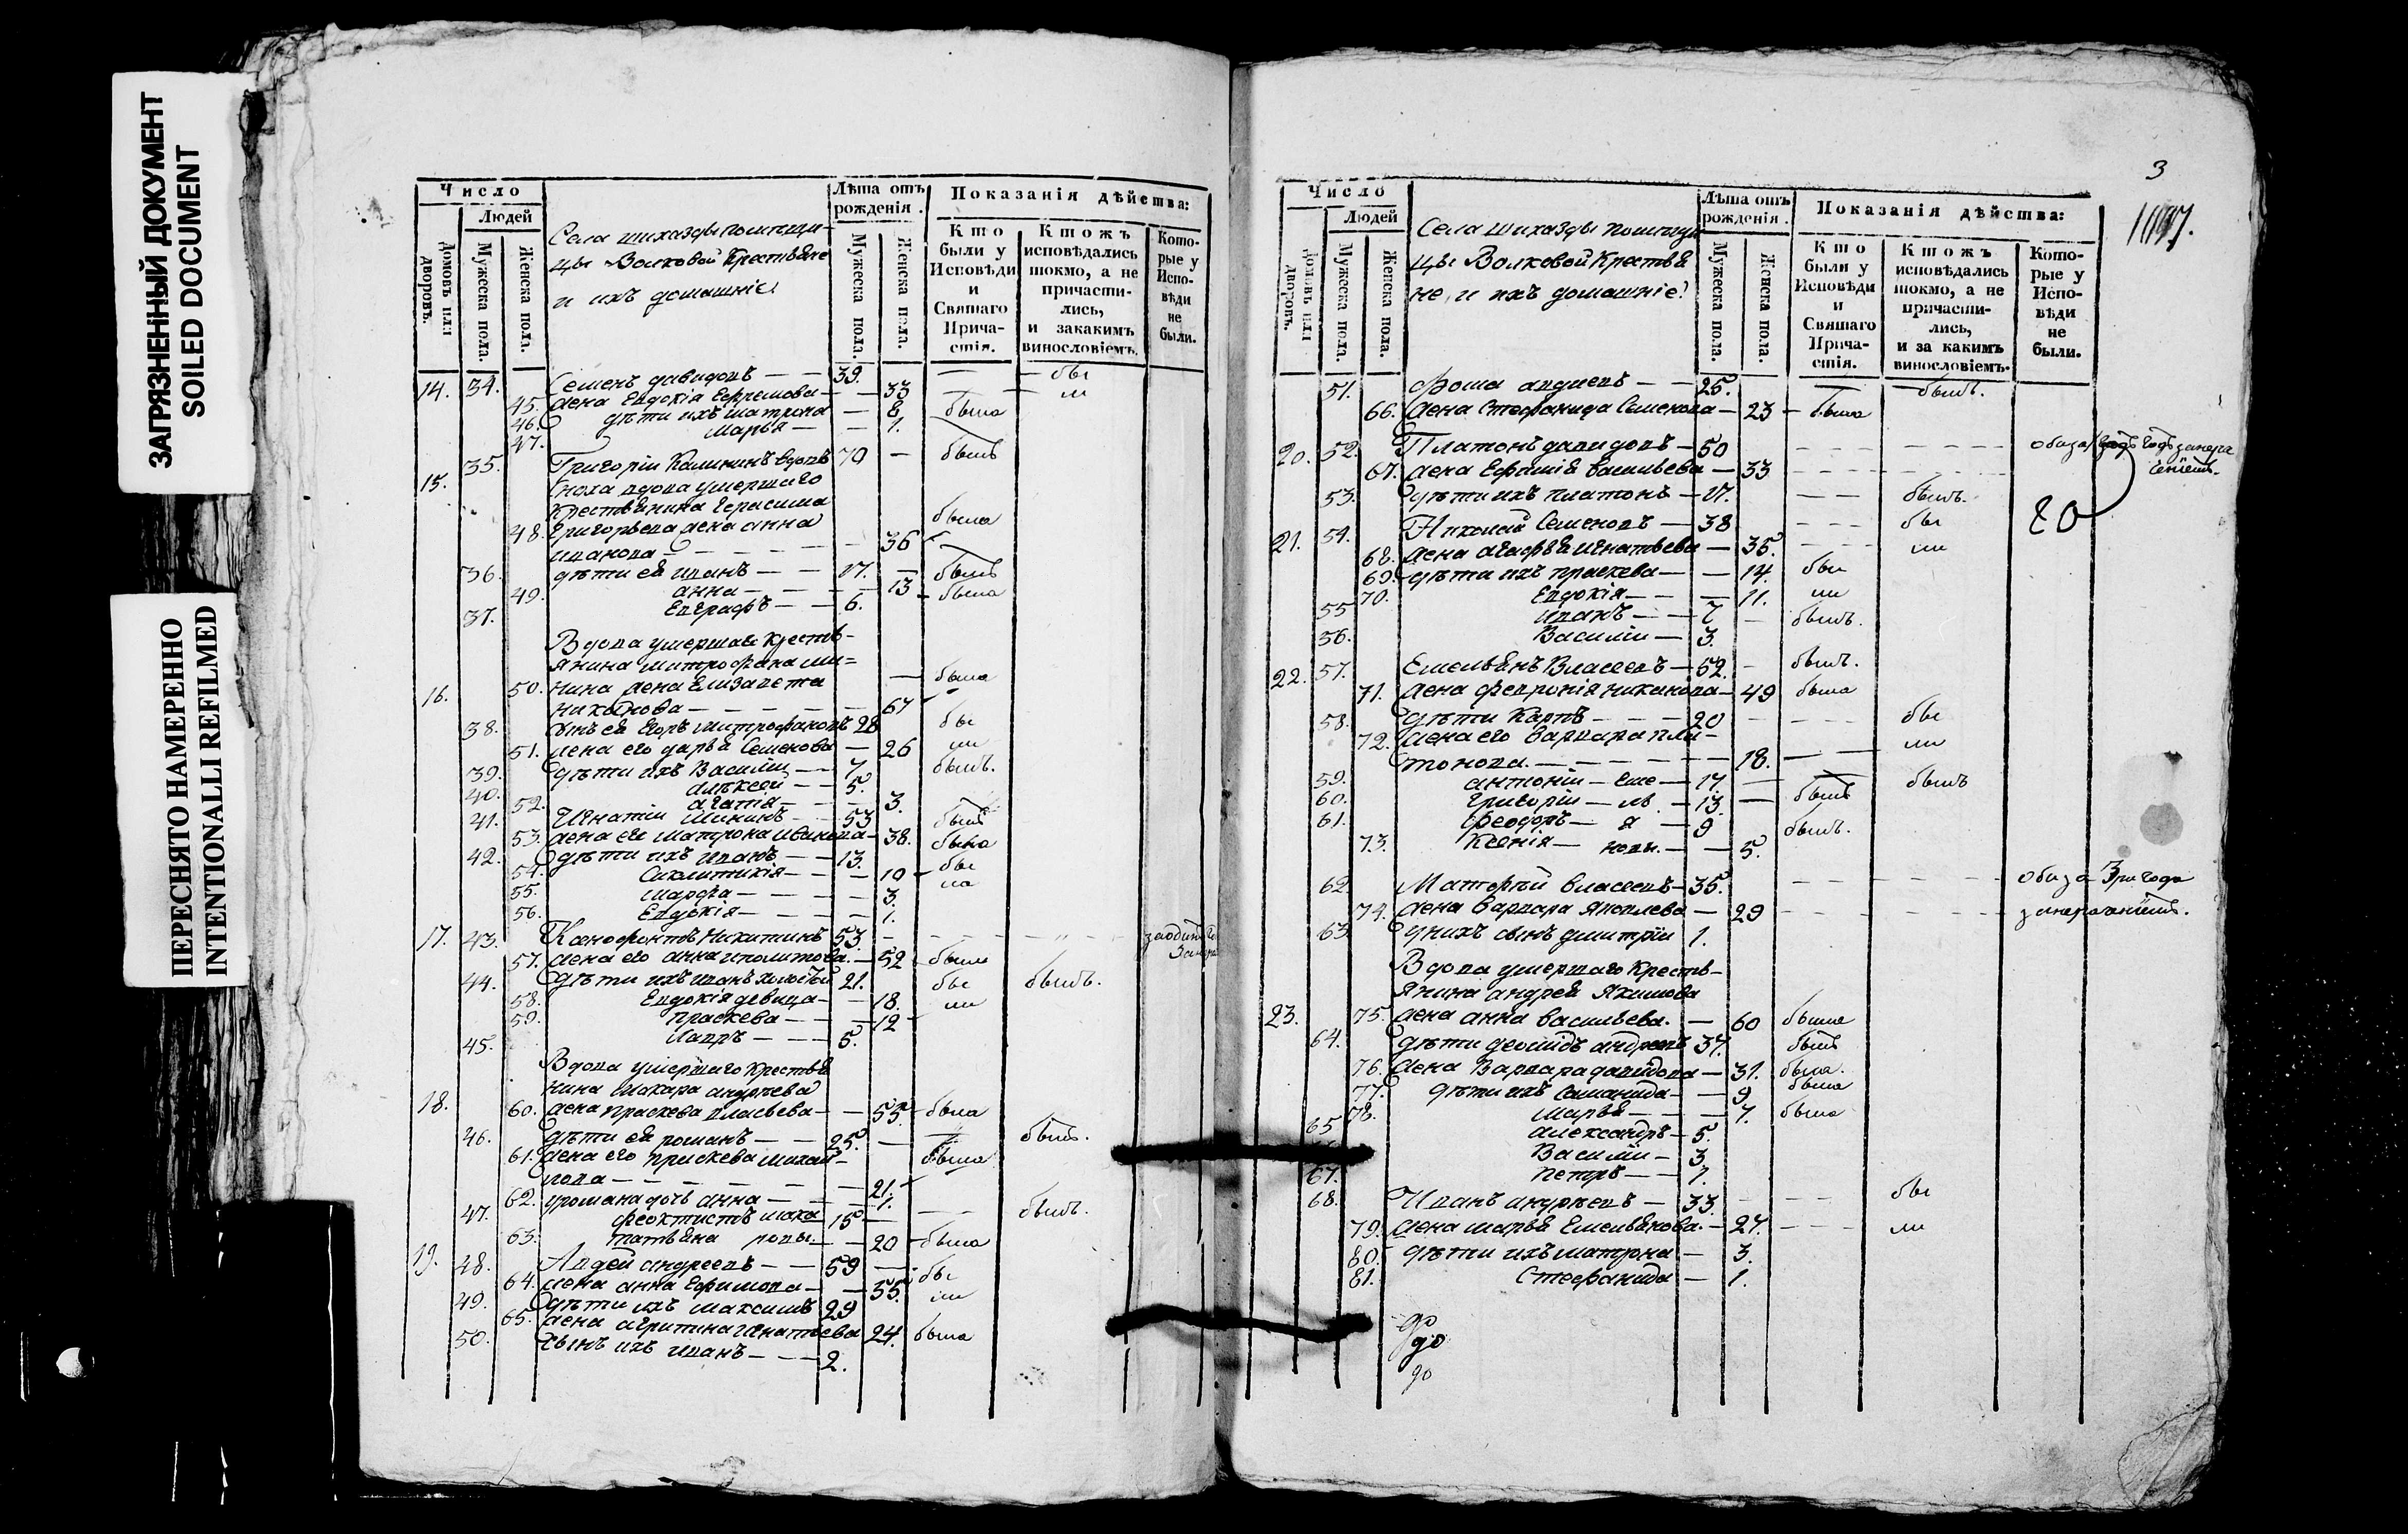 ЗАГРЯЗНЕННЫЙ ДОКУМЕНТ
SOILED DOCUMENT
ПЕРЕСНЯТО НАМЕРЕННО
INTENTIONALLI REFILMED
Число
Людей
Домовъ или дворовъ.
Мужеска пола.
Женска пола.
Села шихазды помѣщи-
цы Волковой Крестьяне
и ихъ домашніе
Лѣта отъ рожденія.
Мужеска пола.
Женска пола.
Показанія дѣйства:
Кто были у Исповѣди и Святаго Прича-стія.
Ктожъ исповѣдались токмо, а не причасти-лись, и закакимъ винословіемъ.
Кото-рые у Испо-вѣди не были.
14. 34. Семенъ давидовъ — — 39. — бы
45. жена Евдокія Ефремова — 33 — ли
46. дѣти ихъ матрона — 8. была
47. Марья — — 1.
15. 35. Григоріи Калининъ вдовъ 70 — былъ
Сноха вдова умершаго
крестьянина Герасима
48. Григорьева жена анна была
иванова — — — 36
36. дѣти ея иванъ — — 17. — былъ
49. анна — — 13 — была
37. Евграфъ — — 6.
Вдова умершаго крестъ-
янина митрофана ми=
16. 50. нина жена Елизавета — была
никонова — — — 67
38. сынъ ея Егоръ митрофановъ 28 бы
51. жена его дарья Семенова — 26 ли
39. дѣти ихъ Василіи — — 7 былъ.
40. алѣксѣи — — 5.
52. агафія — — 3.
41. Игнатіи Мининъ — — 53 былъ
53. жена его матрона иванова — 38. была
42. дѣти ихъ иванъ — — 13. бы
54. Сиклитикія — — 10 — ла
55. марфа — — 3.
56. Евдокія — — 1.
17. 43. Ксенофонтъ Никитинъ 53. —
57. жена его анна иполитова. — 52 — была
44. дѣти ихъ иванъ холостъй 21. бы былъ.
58. Евдокія девица — 18. ли
59. праскева — — 12
45. Лавръ — — 5.
Вдова умершаго крестья
нина Макара андреева
18. 60. жена праскева власьева — — 55. — была
46. дѣти ея романъ — — 25. — былъ.
61. жена его праскева михаи-
лова — — — 21. была
62. уромана дочь анна — — 1.
47. феоктистъ мака — 15 — былъ.
63. татьяна ровы. — 20 — была
19. 48. Авдей андреевъ — — 59 — бы
64. жена анна Ефимова — — 55. ли
49. дѣти ихъ максимъ 29
65. жена агрипина игнатьева 24. была
50. сынъ ихъ иванъ — — 2.
3
Число
Людей
Домовъ или дворовъ.
Мужеска пола.
Женска пола.
Села шихазды помѣщи
цы Волковой Крестья
не, и ихъ домашніе
Лѣта отъ рожденія.
Мужеска пола.
Женска пола.
Показанія дѣйства:
Кто были у Исповѣди и Святаго Прича-стія.
Ктожъ исповѣдались токмо, а не причасти-лись, и за какимъ винословіемъ.
Кото-рые у Испо-вѣди не были.
51. фома авдиевъ — — 25. — былъ.
66. жена Стефанида Семенова — 23 — была
20. 52. Платонъ давидовъ — 50 — — —
67. жена Ефимія васильева — 33 — — —
53. дѣти ихъ платонъ — 17. — — былъ.
21. 54. Николай Семеновъ — 38 — — — бы
68. жена агафья игнатьева — 35. — — — ли
69. дѣти ихъ праскева — — 14. бы
70. Евдокія — — 11. ли
55 иванъ — — 7 — былъ.
56. Василіи — 3.
22. 57. Емельянъ Власеевъ — 52. — былъ.
71. жена февронія никанова — 49 была
58. дѣти Карпъ — — — 20 — — — бы
72. жена его варвара пла-
тонова. — — — 18. — — ли
59. антоніи — Еме — 17. — былъ
60. Григоріи — ль — 13. — былъ
61. феодоръ — я — 9 былъ.
73. Ксенія — новы. — — 5.
62. Матфѣй власеевъ — 35. — — — оба за 3 ри года
74. жена варвара яковлева — 29 — — —
63. у нихъ сынъ дмитріи 1.
Вдова умершаго Кресть-
янина андрея якимова
23. 75. жена анна васильева. — 60 была
64. дѣти деомидъ андреевъ 37. былъ
76. жена Варвара давидова — 31. была.
77. дѣти ихъ Саманида — — 9 была
78. марья — — — 7. была
65 александръ — 5.
Василіи — 3
67. петръ — — 1.
68. Иванъ андреевъ — 33. — — — бы
79. жена марья Емельянова. — 27. — — — ли
80. дѣти ихъ матрона — 3.
81. Стефанида — 1.